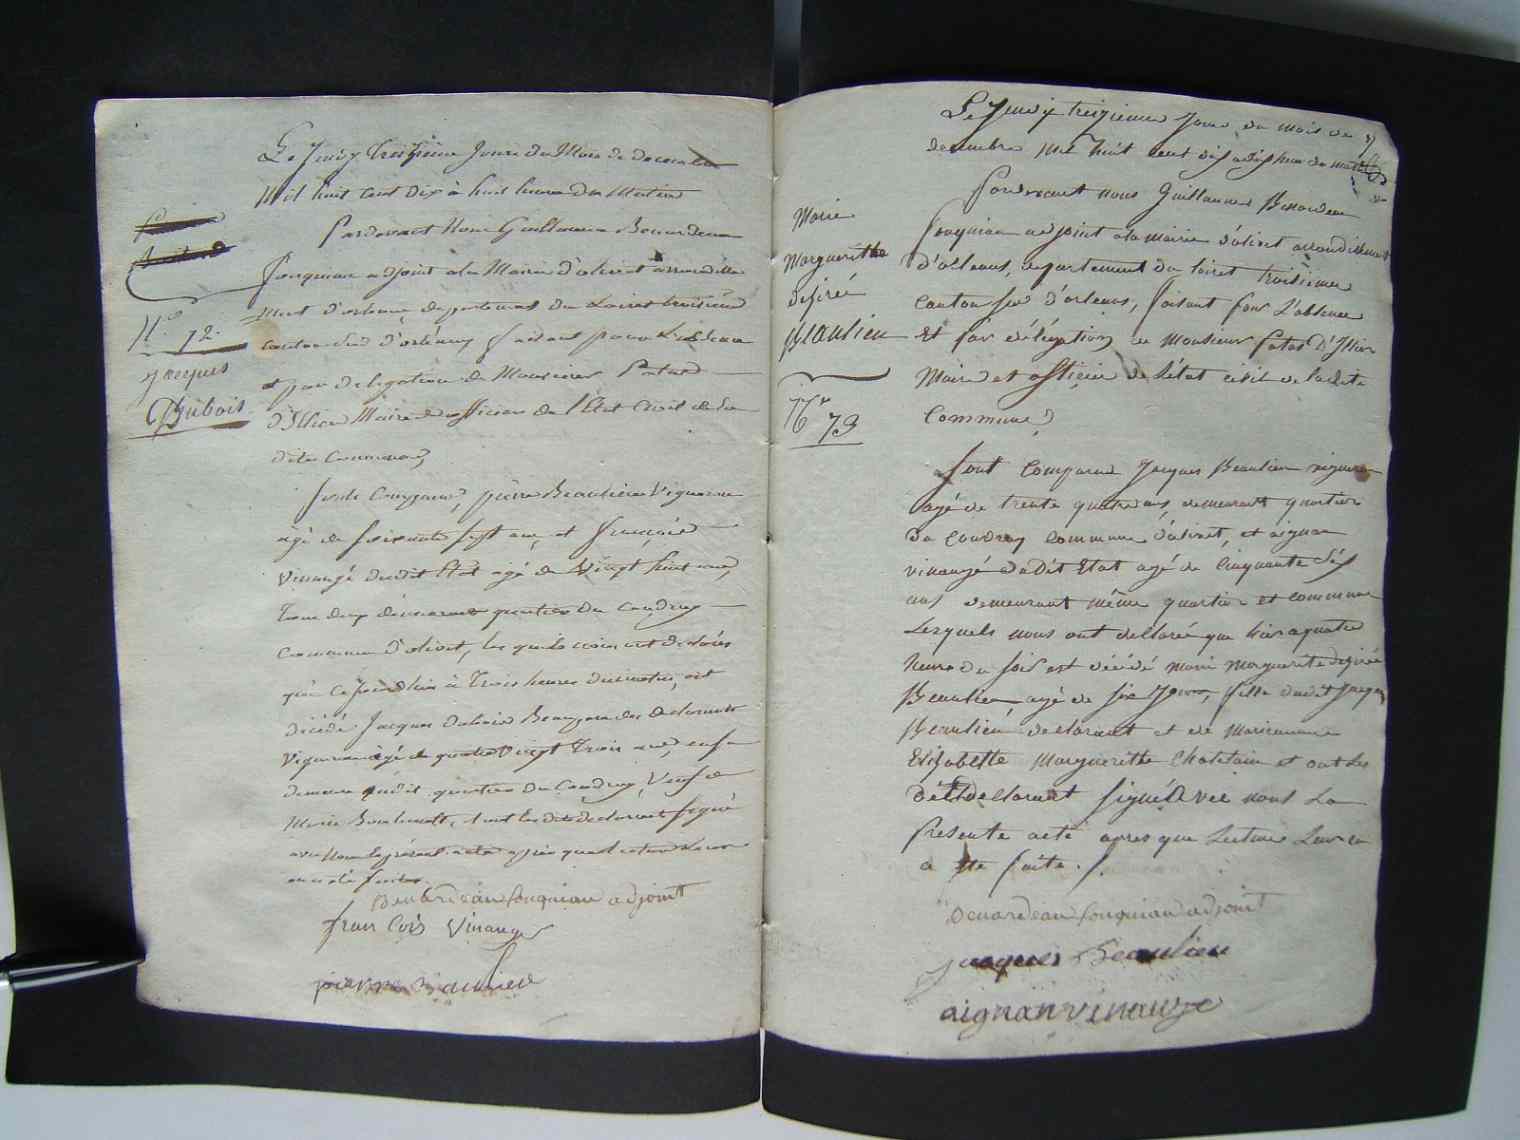 Le Jeudy Treizieme Jour du Mois de decembre
Mil huit cent dix à huit heures du Matin
Pardevant Nous Guillaume Benardeau
fouqueau adjoint a la Mairie d'olivet arrondisse
N.º 72.
ment d'orleans departement du Loiret troisieme
canton Sud d'orleans faisant pour L'absence
Jacques
et par delegation de Monsieur Patas
Dubois
d'Illiers Maire et officier de l'Etat Civil de la
dite Commune,
Sont Comparus, pierre Beaulieu Vigneron
agé de soixante sept ans, et françois
Vinauge dudit Etat agé de Vingt huit ans,
Tous deux demeurant quartier du Coudray
Commune d'olivet, les quels nous ont declarés
que Ce Jourdhui à Trois heures du matin, est
décédé Jacques Dubois Beaupere des declarants
Vigneron agé de quatre Vingt Trois ans,
demeure quartier du Coudray, Veuf de
Marie, et ont les dits declarants signé
avec Nous le présent acte après que lecture Leur
en a été faite.
Benardeau fouqueau adjoint
fran Cois Vinauge
pierre Baulieu
Le Jeudy treizieme Jour du mois de
decembre mil huit cent dix a dix heures du matin
Pardevant nous Guillaume Benardeau
Marie
fouqueau adjoint a la mairie d'olivet arrondissement
Margueritte
d'orleans, departement du loiret troisieme
desirée
canton sud d'orleans, faisant pour L'absence
Beaulieu
Et par délégation de Monsieur patas D'Illiers
Maire et officier de l'état civil de la dite
N.º 73
Commune,
Sont Comparus Jacques Beaulieu vigneron
agé de trente quatre ans, demeurant quartier
du Coudray Commune d'olivet, et aignan
vinauge dudit Etat agé de Cinquante dix
ans demeurant même quartier et commune
Lesquels nous ont declarée que hier a quatre
heure du soir est décédé marie margueritte desirée
Beaulieu agé de six Jours, fille dudit Jacques
Beaulieu declarant et de Marieanne
Elisabette Margueritte Chatelain et ont Les
Dits declarant signé Avec nous La
Presente acte apres que Lecture Leur en
a été faite.
Benardeau fouqueau adjoint
jacques Beaulieu
aignan vinauge